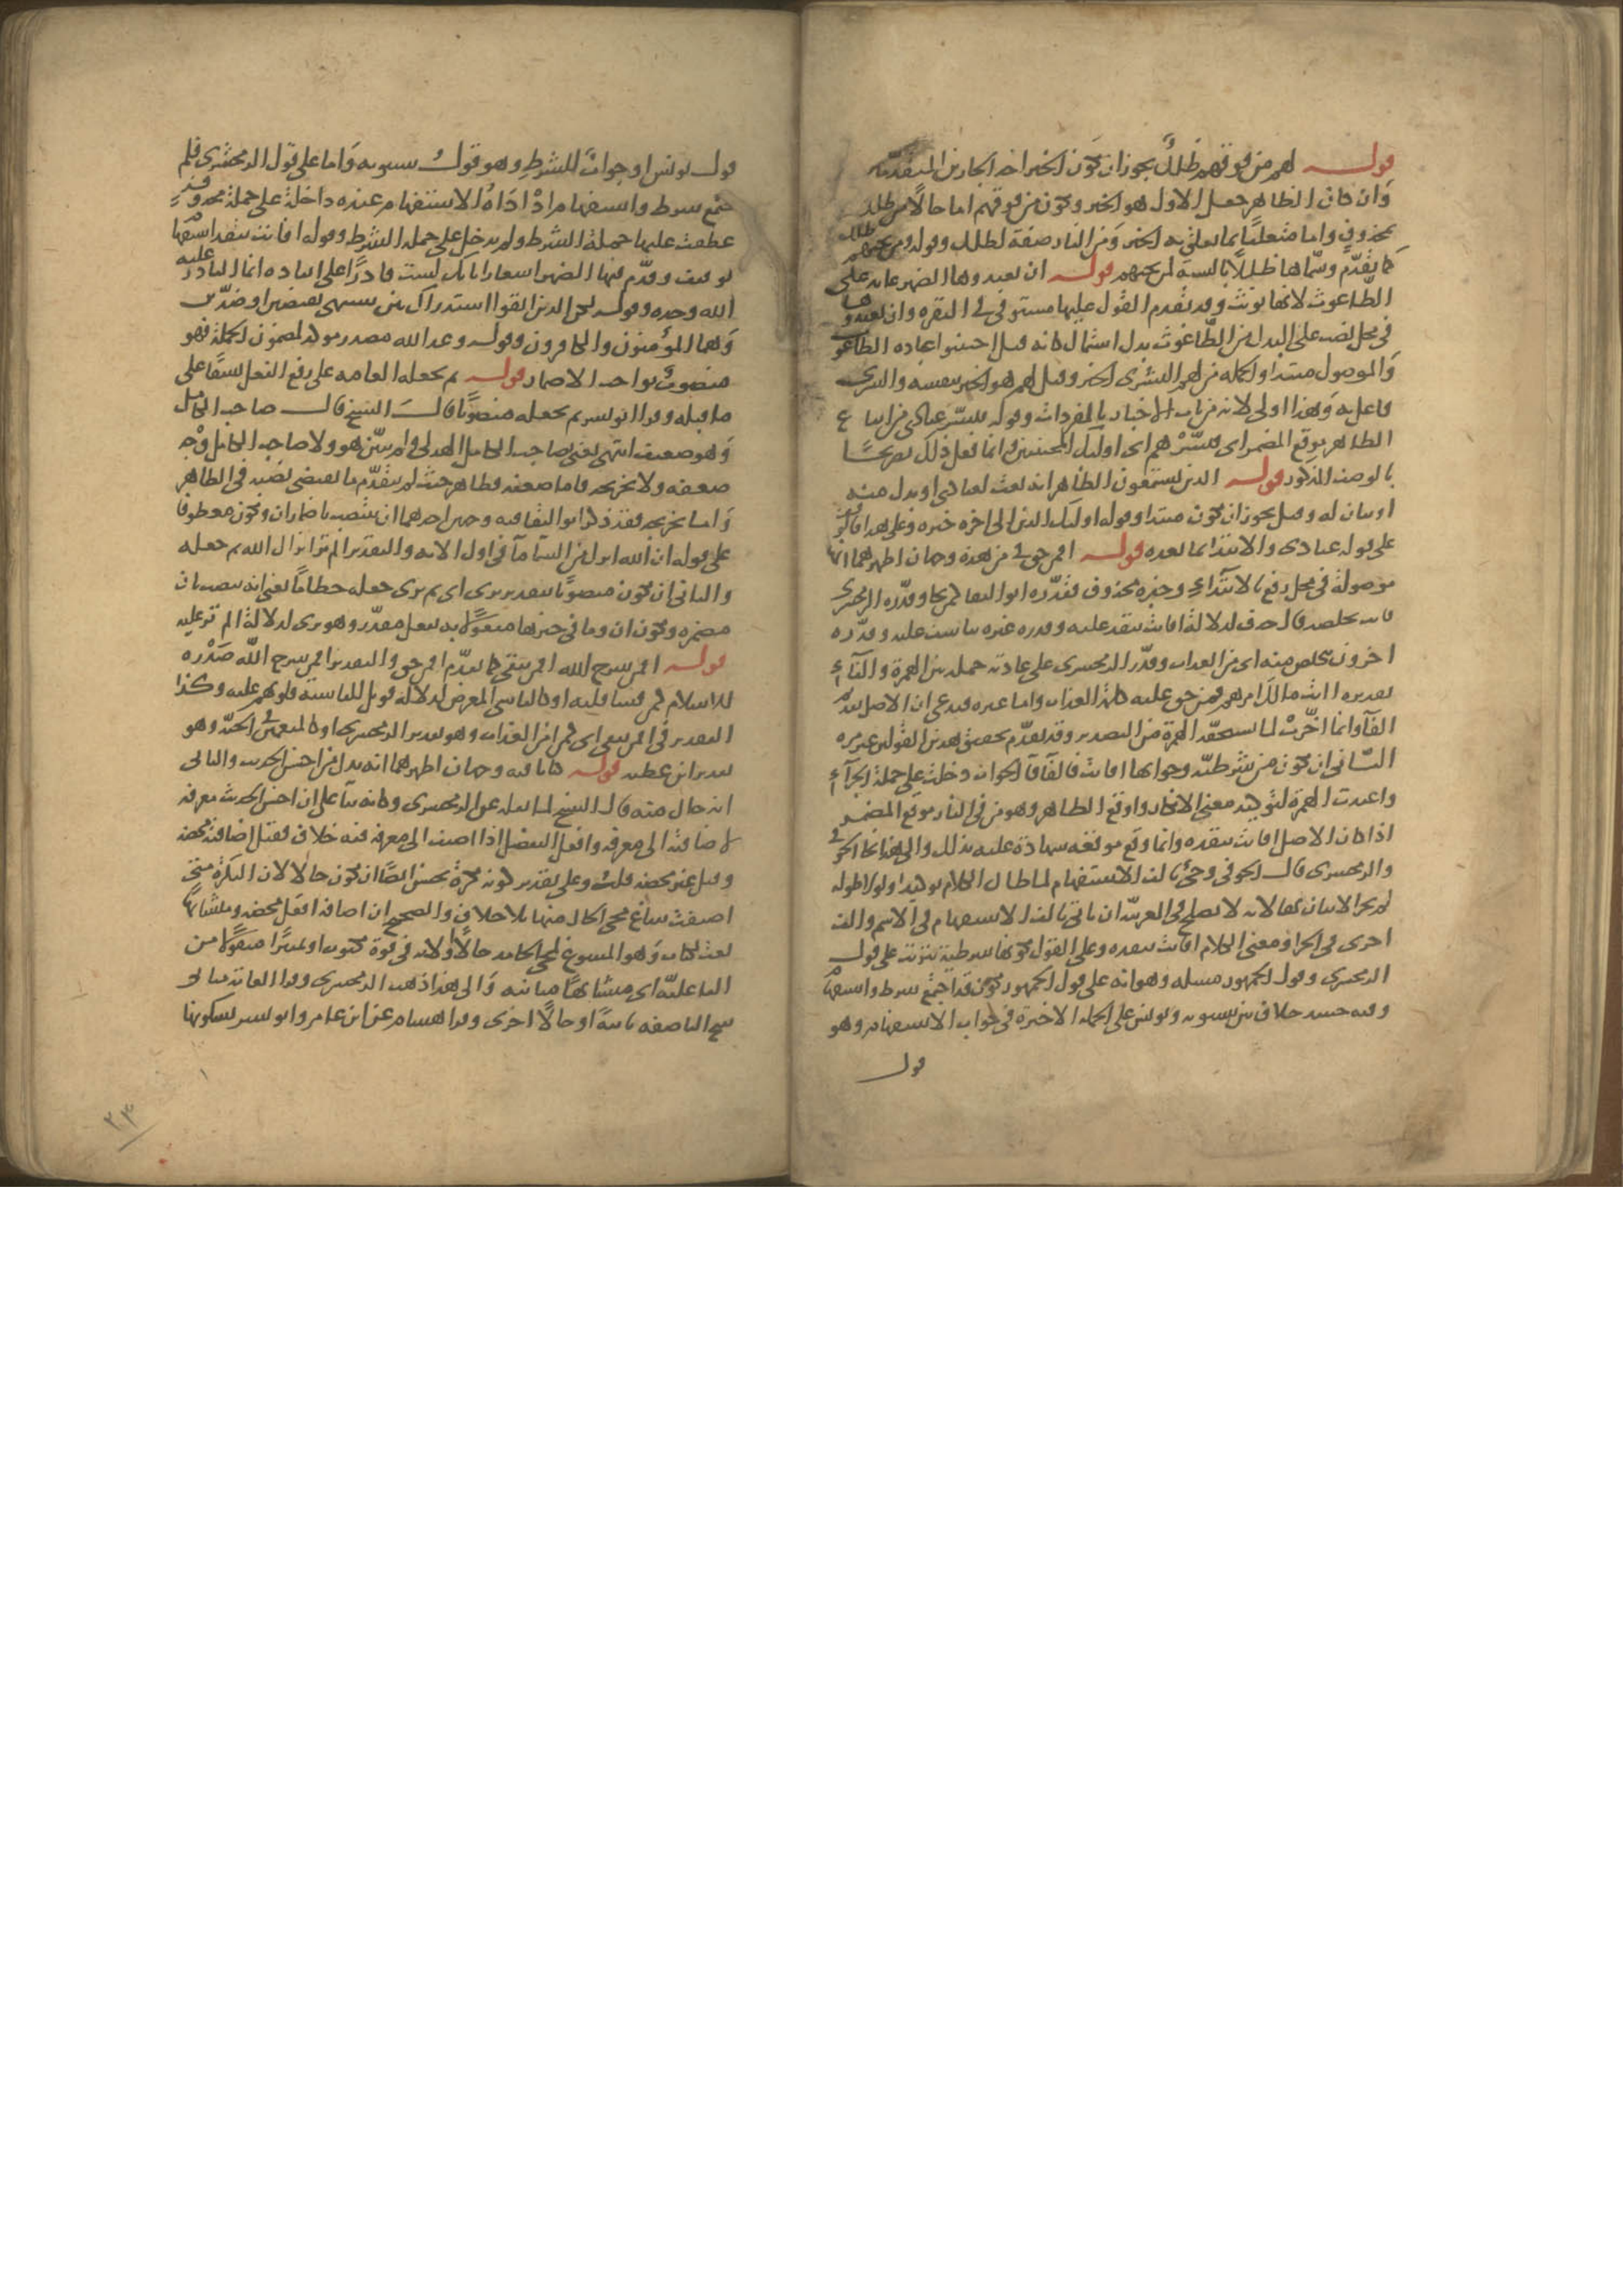 قوله لهم من فوقهم ظلل يجوز ان يكون الخبر احد الجارين المتقدمين
وان كان الظاهر جعل الاول هو الخبر ويكون من فوقهم اما حالا من ظلل
بمحذوف واما متعلقا بما تعلق به الخبر ومن النار صفة لظلل وقوله ومن تحتهم ظلل
كما تقدم وسماها ظللا بالنسبة لمن تحتهم قوله ان يعبدوها الضمير عايد على
الطاغوت لانها تونث وقد تقدم القول عليها مستوفى في البقره وان يعبدوها
في محل نصب على البدل من الطاغوت بدل اشتمال كانه قيل اجتنبوا عباده الطاغوت
والموصول مبتدا والجمله من لهم البشرى الخبر وقيل لهم هو الخبر بنفسه والبشرى
فاعل به وهذا اولى لانه من باب الاخبار بالمفردات وقوله فبشر عبادي من ايقاع
الظاهر موقع المضمر اى فبشرهم اى اوليك المجتنبين وانما فعل ذلك تصريحا
بالوصف المذكور قوله الذين يستمعون الظاهر انه نعت لعبادي او بدل منه
او بيان له وقيل يجوز ان يكون مبتدا وقوله اوليك الذين الى اخره خبره وعلى هذا فالوقف
على قوله عبادى والابتدا بما بعده قوله افمن حق في من هذه وجهان اظهرهما انها
موصولة في محل رفع بالابتداء وخبره محذوف فقدره ابو البقا كمن نجا وقدره الزمخشرى
فانت تخلصه قال حذف لدلالة افانت تنقذ عليه وقدره غيره تتاسف عليه وقدره
اخرون يتخلص منه اى من العذاب وقدر الزمخشرى على عادته جملة بين الهمزة والفاء
تقديره اانت مالك امرهم فمن حق عليه كلمة العذاب واما غيره فيدعى ان الاصل تقديم
الفا وانما اخرت لما تستحقه الهمزة من التصدير وقد تقدم تحقيق هذين القولين غير مره
الثاني ان تكون من شرطية وجوابها افانت فالفا فا الجواب دخلت على جملة الجزاء
واعيدت الهمزة لتوكيد معنى الانكار واوقع الظاهر وهو من في النار موقع المضمر
اذ كان الاصل افانت تنقذه وانما وقع موقعه شهادة عليه بذلك والى هذا نحا الحوفي
والزمخشرى قال الحوفي وجئ بالف الاستفهام لما طال الكلام توكيدا ولولا طوله
لم يجز الاتيان بها لانه لا يصلح في العربية ان ياتى بالف الاستفهام في الاسم والف
اخرى في الجزا ومعنى الكلام افانت تنقذه وعلى القول بكونها شرطية يترتب على قول
الزمخشرى وقول الجمهور مسله وهو انه على قول الجمهور يكون قد اجتمع شرط واستفهام
وفيه حينيذ خلاف بين سيبويه ويونس هل الجمله الاخيرة في جواب الاستفهام وهو
قول
قول يونس او جوابا للشرط وهو قول سيبويه واما على قول الزمخشرى فلم
يجتمع شرط واستفهام اذ اداة الاستفهام عنده داخلة على جملة محذوفة
عطفت عليها جملة الشرط ولم يدخل على جملة الشرط وقوله افانت تنقذ استفهام
توقيف وقدم فيها الضمير اشعارا بانك لست قادرا على انقاده انما القادر عليه
الله وحده وقوله لكن الذين اتقوا استدراك بين شيين نقيضين او ضدين
وهما المؤمنون والكافرون وقوله وعد الله مصدر موكد لمضمون الجملة فهو
منصوب بواجب الاضمار قوله ثم يجعله العامه على رفع الفعل نسقا على
ما قبله وقرا ابو بشر ثم يجعله منصوبا قال الشيخ قال صاحب الكامل
وهو ضعيف انتهى يعني صاحب الكامل الهذلى ولم يبين هو ولا صاحب الكامل وجه
ضعفه ولا تخريجه فاما ضعفه فظاهر حيث لم يتقدم ما يقتضى نصبه في الظاهر
واما تخريجه فقد ذكر ابو البقا فيه وجهين احدهما ان ينتصب باضمار ان ويكون معطوفا
على قوله ان الله انزل من السما ما في اول الايه والتقدير الم تر انزال الله ثم جعله
والثانى ان يكون منصوبا بتقدير يرى اى ثم يرى جعله حطاما يعنى انه ينصب بان
مضمره ويكون ان وما في حيزها مفعولا به بفعل مقدر وهو يرى لدلالة الم تر عليه
قوله افمن شرح الله افمن يتقى كما تقدم افمن حق والتقدير افمن شرح الله صدره
للاسلام كمن قسا قلبه او كالقاسى المعرض لدلالة فويل للقاسية قلوبهم عليه وكذا
التقدير في افمن يتقى اى كمن امن العذاب وهو تقدير الزمخشرى او كالمنعمين في الجنة وهو
تقدير ابن عطيه قوله كتابا فيه وجهان اظهرهما انه بدل من احسن الحديث والثانى
انه حال منه قال الشيخ لما نقله عن الزمخشرى وكانه بنا على ان احسن الحديث معرفه
لاضافته الى معرفه وافعل التفضيل اذا اضيف الى معرفه فيه خلاف فقيل اضافته محضه
وقيل غير محضه قلت وعلى تقدير كونه نكرة يحسن ايضا ان يكون حالا لان النكرة متى
اضيفت ساغ مجى الحال منها بلا خلاف والصحيح ان اضافة افعل محضه ومتشابها
نعت لكتاب وهو المسوغ لمجى الجامد حالا ولانه في قوة مكتوب او لمبتدا منقولا من
الفاعلية اى متشابها مثانيه والى هذا ذهب الزمخشرى وقرا العامه مثاني
بفتح اليا صفه ثانية او حالا اخرى وقرا هشام عن ابن عامر وابو بشر بسكونها